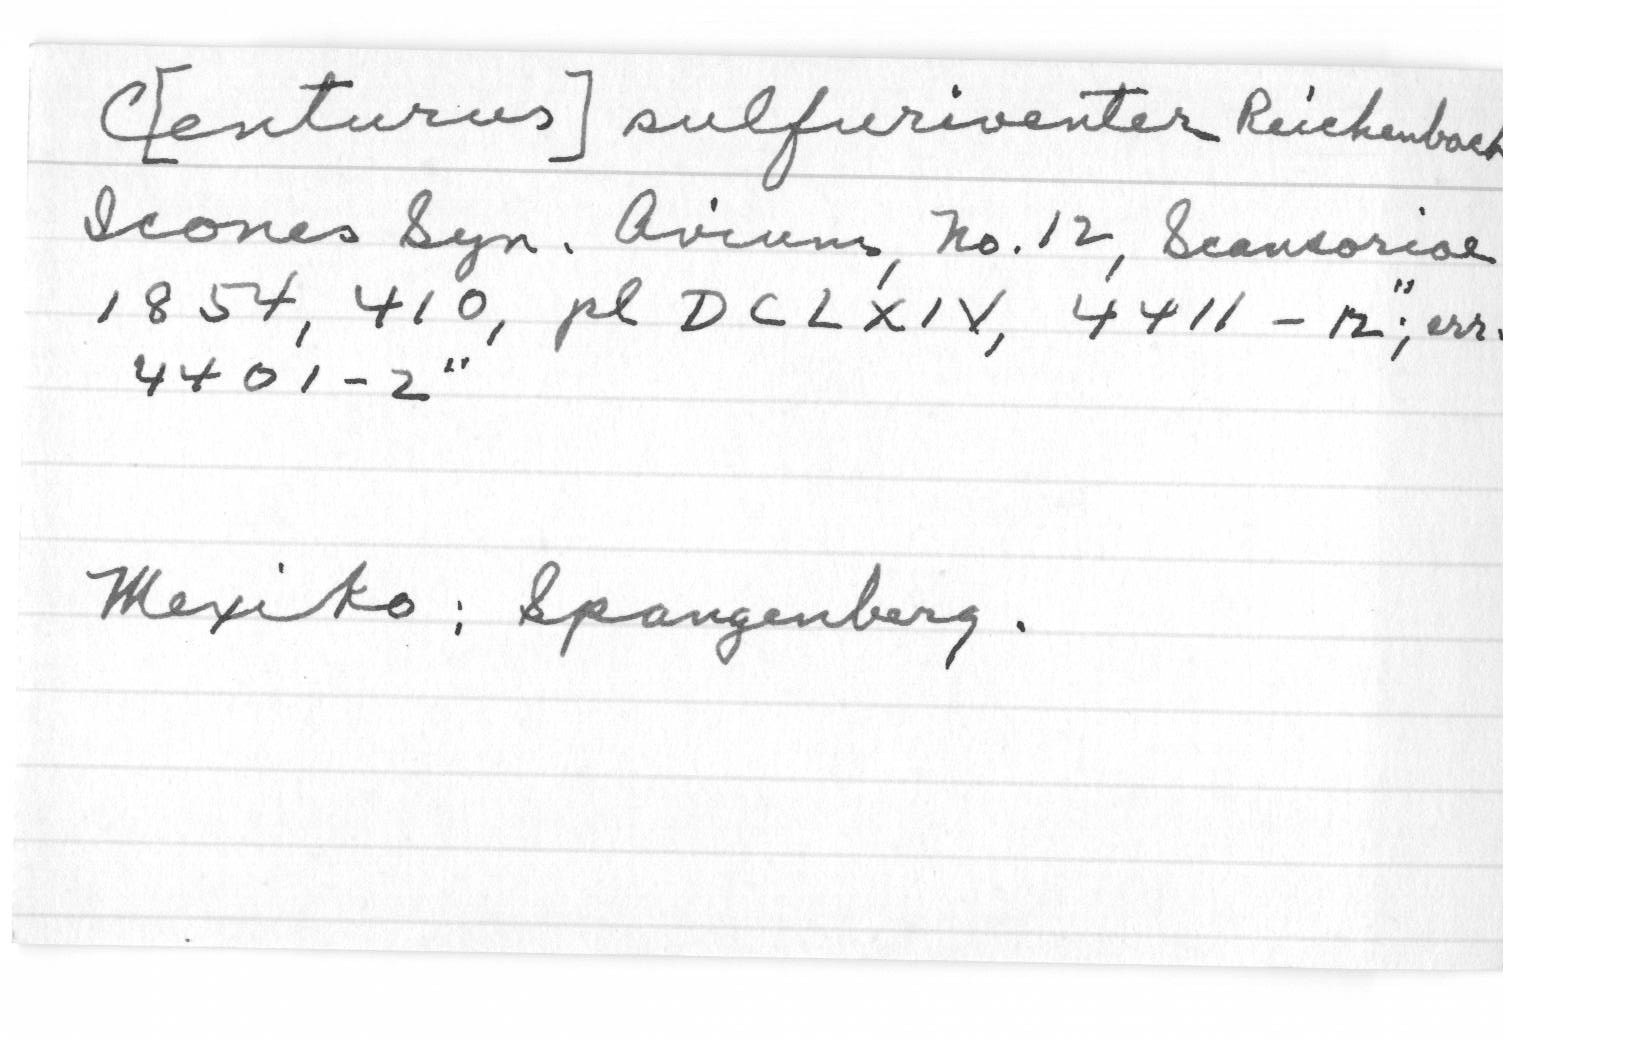 C[enturus] sulfuriventer Reichenbach
Icones Syn. Avium, No. 12, Scansoriae
1854, 410, pl DCLXIV, 4411 - 12"; err.
4401 - 2"
Mexiko; Spangenberg.